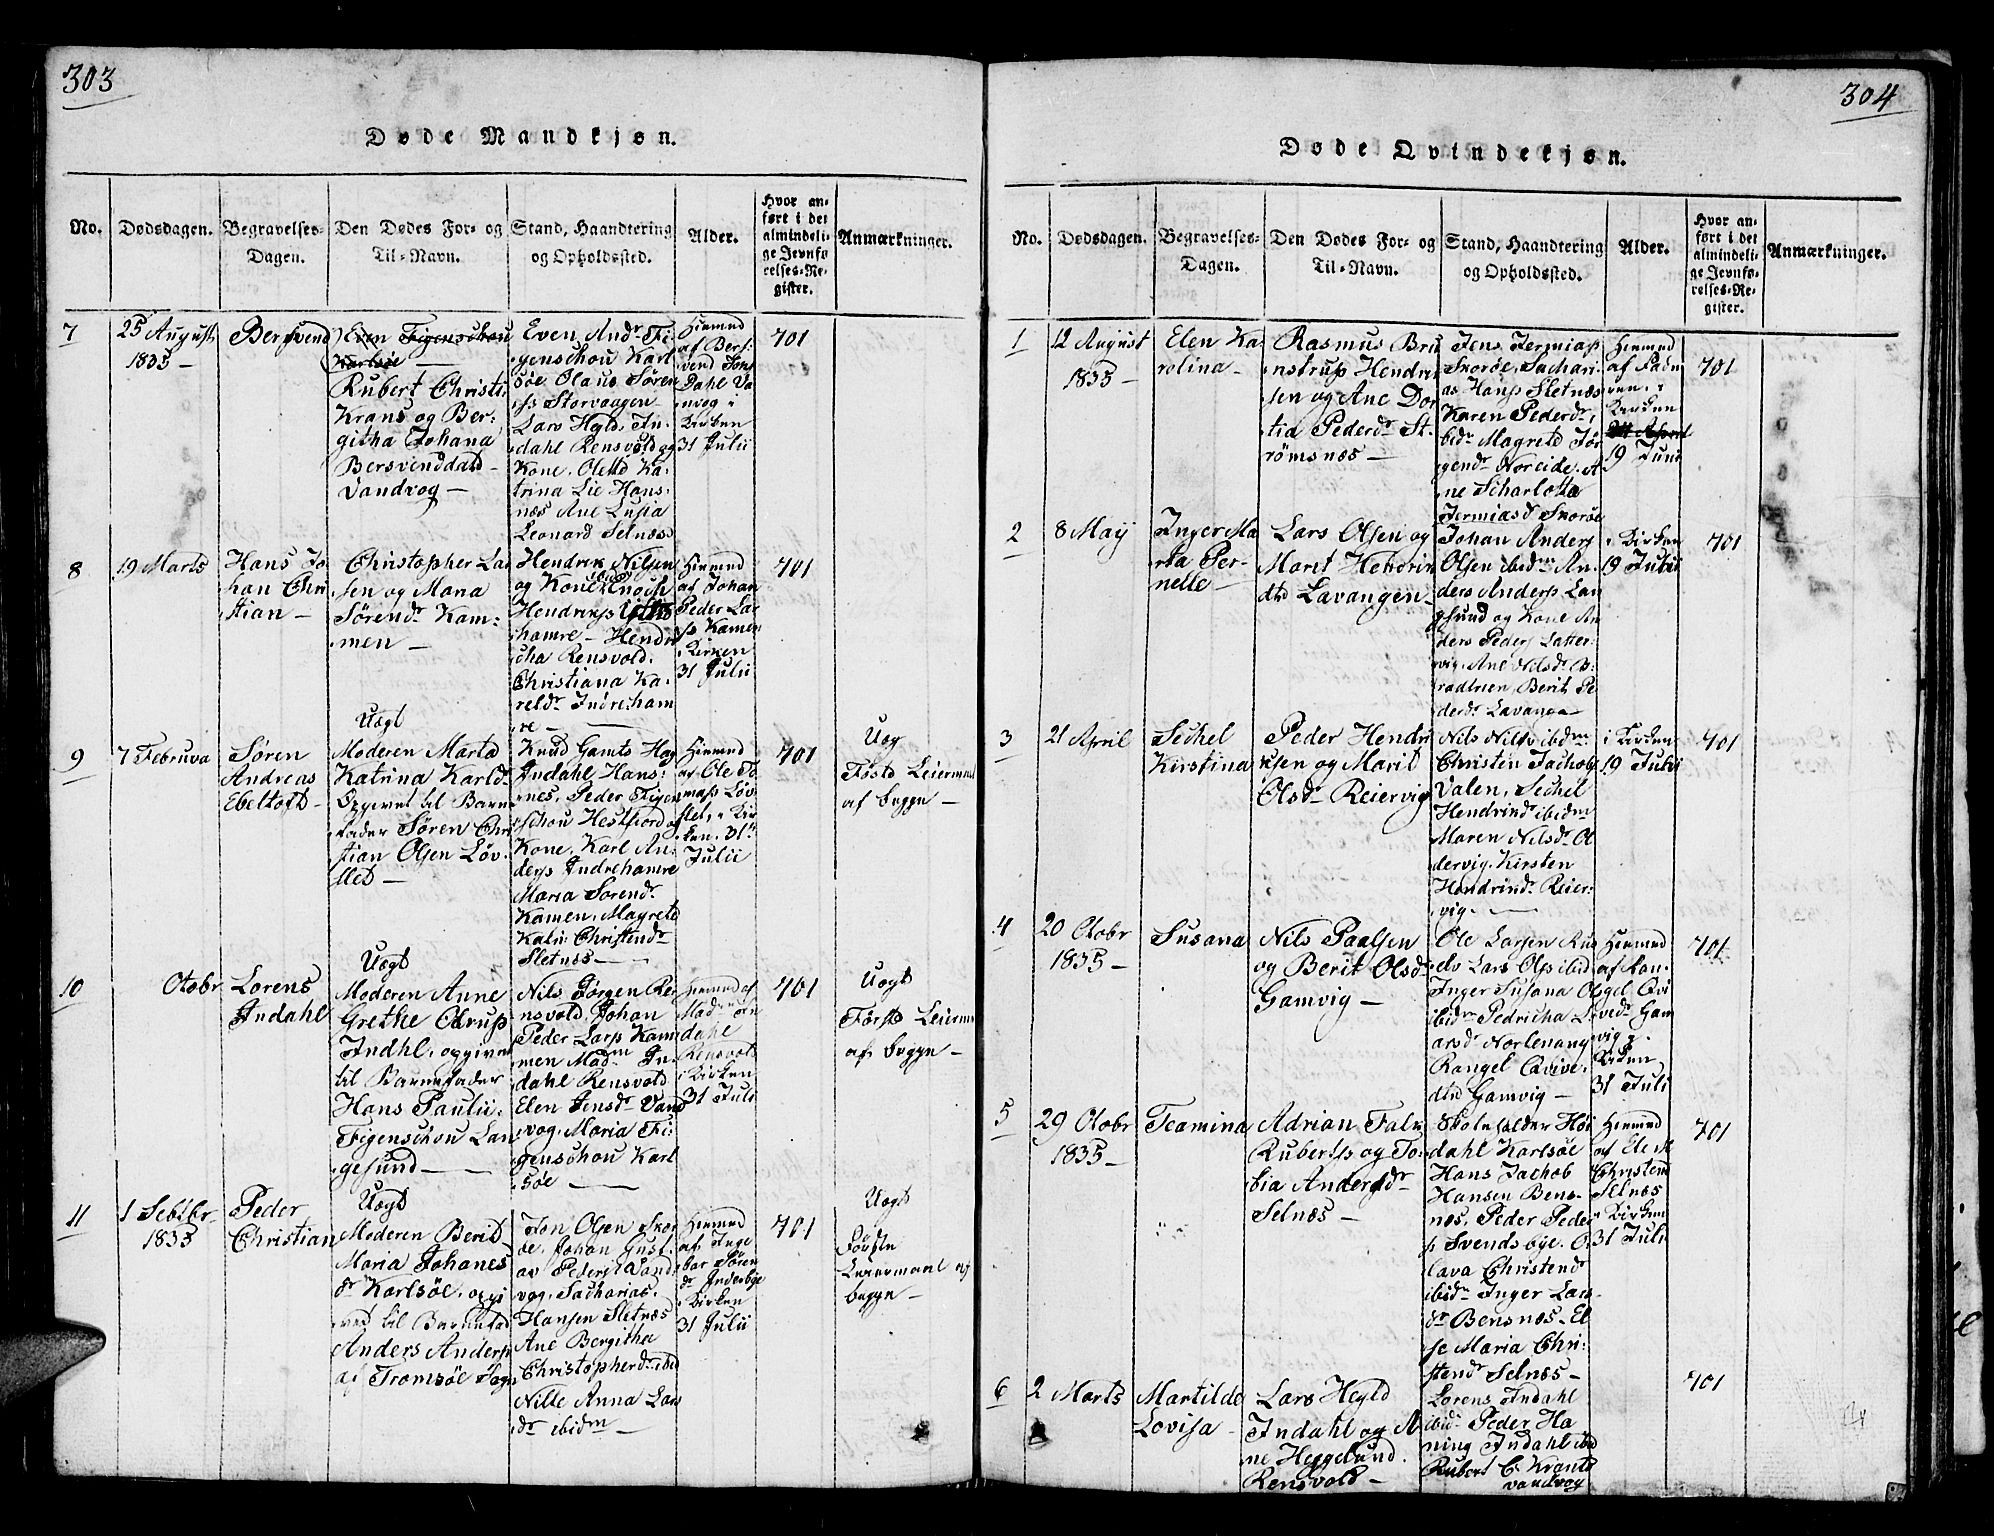 303
Døde Mandkjøn.
No.
Dødsdagen.
Begravelses-
Dagen.
Den Dødes For- og
Til-Navn.
Stand, Haandtering
og Opholdssted.
Alder.
Hvor an-
ført i det
almindeli-
ge Jevnfø
relses-Re-
gister.
Anmærkninger.
7
25 August
1835 –
Bersvend
Even Figenschou
Karlsöe
Rubert Christi
Krans og Ber:
githa Johana
Bersvenddatt
Vandvog –
Even Andr Fi
genschou Karl
söe Olaus Sören
Storvaagen
Lars Hgld. In
dahl Rensvold og
Kone. Olettd Ka:
trina Lie Hans:
næs Ane Lusia
Leonard Selnæs
Hiemmd
af Bers:
vend Jons
Dahl Va
nvog i
Kirken
31 Julii
701
8
19 Marts
Hans Jo
han Chri
stian –
Christopher Lar
sen og Mana
Sörendr Kam:
men –
Hendrik Nilsen
og Kone Enoch
Hendriks
hamre – Hendri
cha Rensvold.
Christiana Ka:
reldr Indreham
re –
Hiemmd
af Johan
Peder Lar
s Kamen
i Kirken
31 Julii
701
9
7 Februva
Søren
Andreas
Ebeltoft –
Uægt
Moderen Marta
Katrina Karldr
Opgivet til Barn
fader Sören Chri
stian Olsen Löv:
slet –
Knud Gamts Hag
Indahl Hans:
nes, Peder Figen
schou Hestfiord og
Kone, Karl An
ders Indrehamre
Maria Sorendr
Kamen, Magrete
Katri Christendr
Sletnæs –
Hiemmd
af Ole To
mas Löv
slet, i Kir
ken. 31
Julii
701
Uæg
Föstd Leiermaal
af begge –
10
Otobr
Lorens
Indahl
Uægt
Moderen Anne
Grethe Olrup
Indhl. opgivet
til Barnefader
Hans Paulii
Figenschou Lan
gesund –
Nils Jörgen Re
nsvold, Johan
Peder Lars Kam
men Madm In
dahl Rensvold
Elen Jensdr Vand
vog, Maria Fi:
genschou Karl
söe –
Hiemmd af
Madm In
dahl
Rensvold
i Kirken
31 Juli
701
Uægt
Förstd Leierm
af begge –
11
1 Sebtbr
1835
Peder
Christian
Uægt
Moderen Berit
Maria Johanes
dr Karlsöe, opgi
ved til Barnefad
Anders Anders
af Tromsöe Sogn
Jon Olsen Skor
öe, Johan Gust
av Peders Vand
vog, Sacharias
Hansen Sletnæs
Ane Bergitha
Christopherdr ibid
Nille Anna Lar
dr ibidm –
Hiemmd
af Inge
bor Sören
dr Inderbye
i Kirken
31 Julii
701
Uægt
Förstn
Leiermaal af
begge –
304
Døde Qvindekjøn.
No.
Dødsdagen.
Begravelses-
Dagen.
Den Dødes For- og
Til-Navn.
Stand, Haandtering
og Opholdssted.
Alder.
Hvor an-
ført i det
almindeli-
ge Jevnfø-
relses-Re-
gister.
Anmærkninger.
1
12 August
1835 –
Elen Ka
rolina –
Rasmus Bru
nstrup Hendri
sen og Ane Dor
tia Pederdr St.
römsnæs –
Jens Jermias
Skoröe, Sachari
as Hans Sletnæs
Karen Pederdr
ibidr Magretd Jör
gendr Noreide. A
ne Scharlotta
Jermiasd Skoröe
Hiemmd
af
i
Kirken
19 Juni
701
2
8 Maÿ
Inger Ma
rta Per
nelle –
Lars Olsen og
Marit Hendrin
dtd Lavangen –
Johan Anders
Olsen ibidm An
ders Anders Lan
gsund og Kone An
ders Peders Latter:
vig, Ane Nilsdr B:
radtrien, Berit Pe
derdr Lavange
i Kirken
19 Julii
701
3
21 April
Sechel
Kirstina
Peder Hendri
ksen og Marit
Olsdr Reiervig
Nils Nils ibidm
Christen Jachob
Valen, Sechel
Hendrind ibidm
Maren Nilsdr Ol
dervig. Kirsten
Hendrindr Reier:
vig. –
i Kirken
19 Julii
701
4
20 Otobr
1835 –
Susana
Nils Paalsen
og Berit Olsdr
Gamvig –
Ole Larsen Rus
elv Lars Ols ibid
Inger Susana Ol
ibidr Pedricha L
arsdr Norlenang
Rangel Qvive
dtd Gamvig –
Hiemmd
af Ran
gel Qvi
vedr Gam
vig i
Kirken
31 Juli
701
5
29 Otobr
1835 –
Teamina
Adrian Falk
Ruberts og To:
bia Andersdr
Selnæs –
Skoleholder Höi
dahl Karlsöe
Hans Jachob
Hansen Bens-
næs, Peder Peder
s Svendsbye. O
lava Christend
ibidr Inger Lars
dr Bensnæs. El
se Maria Chri:
stendr Selnæs –
Hiemmd
af Elen
Christend
Selnæs
i Kirken
31 Juli
701
6
2 Marts
Martilde
Lovisa –
Lars Hegld
Indahl og A
ne Heggelund
Rensvold –
Lorens Indahl
ibidr Peder Ha
ning Indahl ibid
Rubert C. Krants
vandvog
701